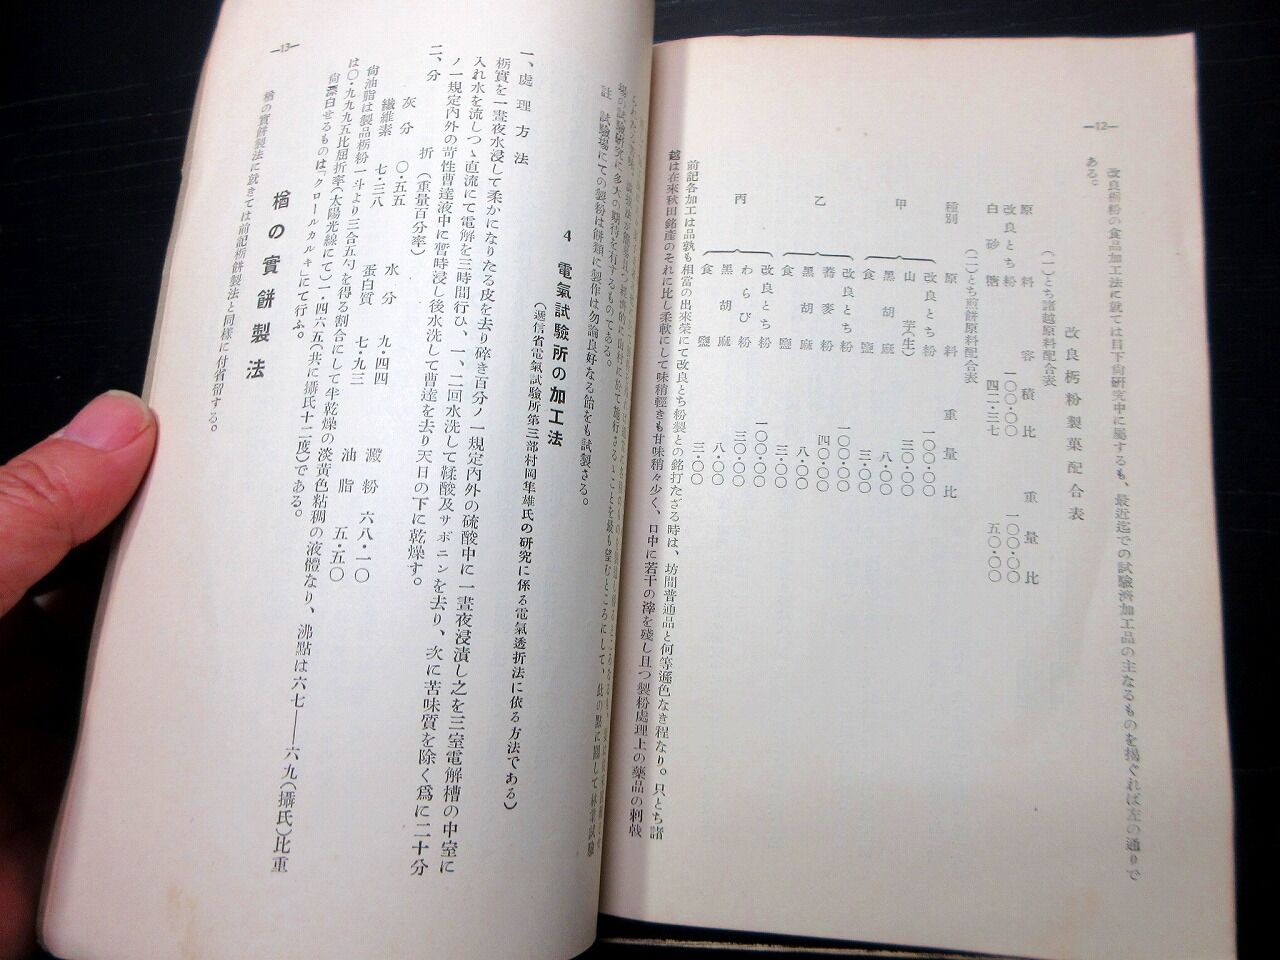 —12—
改良栃粉の食品加工法に就ては目下尙研究中に屬するも、最近迄での試驗濟加工品の主なるものを揭ぐれば左の通りで
ある。
改良栃粉製菓配合表
(一)とち諸越原料配合表
原料 容積比 重量比
改良とち粉 一〇〇・〇〇 一〇〇・〇〇
白砂糖 四二・三七 五〇・〇〇
(二)とち煎餅原料配合表
種別 原料 重量比
甲 改良とち粉 一〇〇・〇〇
山芋(生) 三〇・〇〇
黑胡麻 八・〇〇
食鹽 三・〇〇
乙 改良とち粉 一〇〇・〇〇
蕎麥粉 四〇・〇〇
黑胡麻 八・〇〇
食鹽 三・〇〇
丙 改良とち粉 一〇〇・〇〇
わらび粉 三〇・〇〇
黑胡麻 八・〇〇
食鹽 三・〇〇
前記各加工は品孰も相當の出來榮にて改良とち粉製との銘打たざる時は、坊間普通品と何等遜色なき程なり。只とち諸
越は在來秋田銘產のそれに比し柔軟にして味稍輕きも甘味稍々少く、口中に若干の滓を殘し且つ製粉處理上の藥品の刺戟
—13—
場の試驗硏究に多大の期待を有するものである。
註 試驗場にての製粉は餅類に製作は勿論良好なる飴をも試製さる。
4 電氣試驗所の加工法
(遞信省電氣試驗所第三部村岡隼雄氏の研究に係る電氣透折法に依る方法である)
一、處理方法
栃實を一晝夜水浸して柔かになりたる皮を去り碎き百分ノ一規定內外の硫酸中に一晝夜浸漬し之を三室電解槽の中室に
入れ水を流しつゝ直流にて電解を三時間行ひ、一、二回水洗して鞣酸及サポニンを去り、次に苦味質を除く爲に二十分
ノ一規定內外の苛性曹達液中に暫時浸し後水洗して曹達を去り天日の下に乾燥す。
二、分折(重量百分率)
灰分 〇・五五 水分 九・四四 澱粉 六八・一〇
纖維素 七・三八 蛋白質 七・九三 油脂 五・五〇
尙油脂は製品栃粉一斗より三合五勺を得る割合にして半乾燥の淡黃色粘稠の液體なり、沸點は六七——六九(攝氏)比重
は〇・九九九五比屈折率(太陽光線にて)一・四六五(共に攝氏十二度)である。
尙漂白せるものは「クロールカルキ」にて行ふ。
楢の實餅製法
楢の實餅製法に就きては前記栃餅製法と同樣に付省畧する。